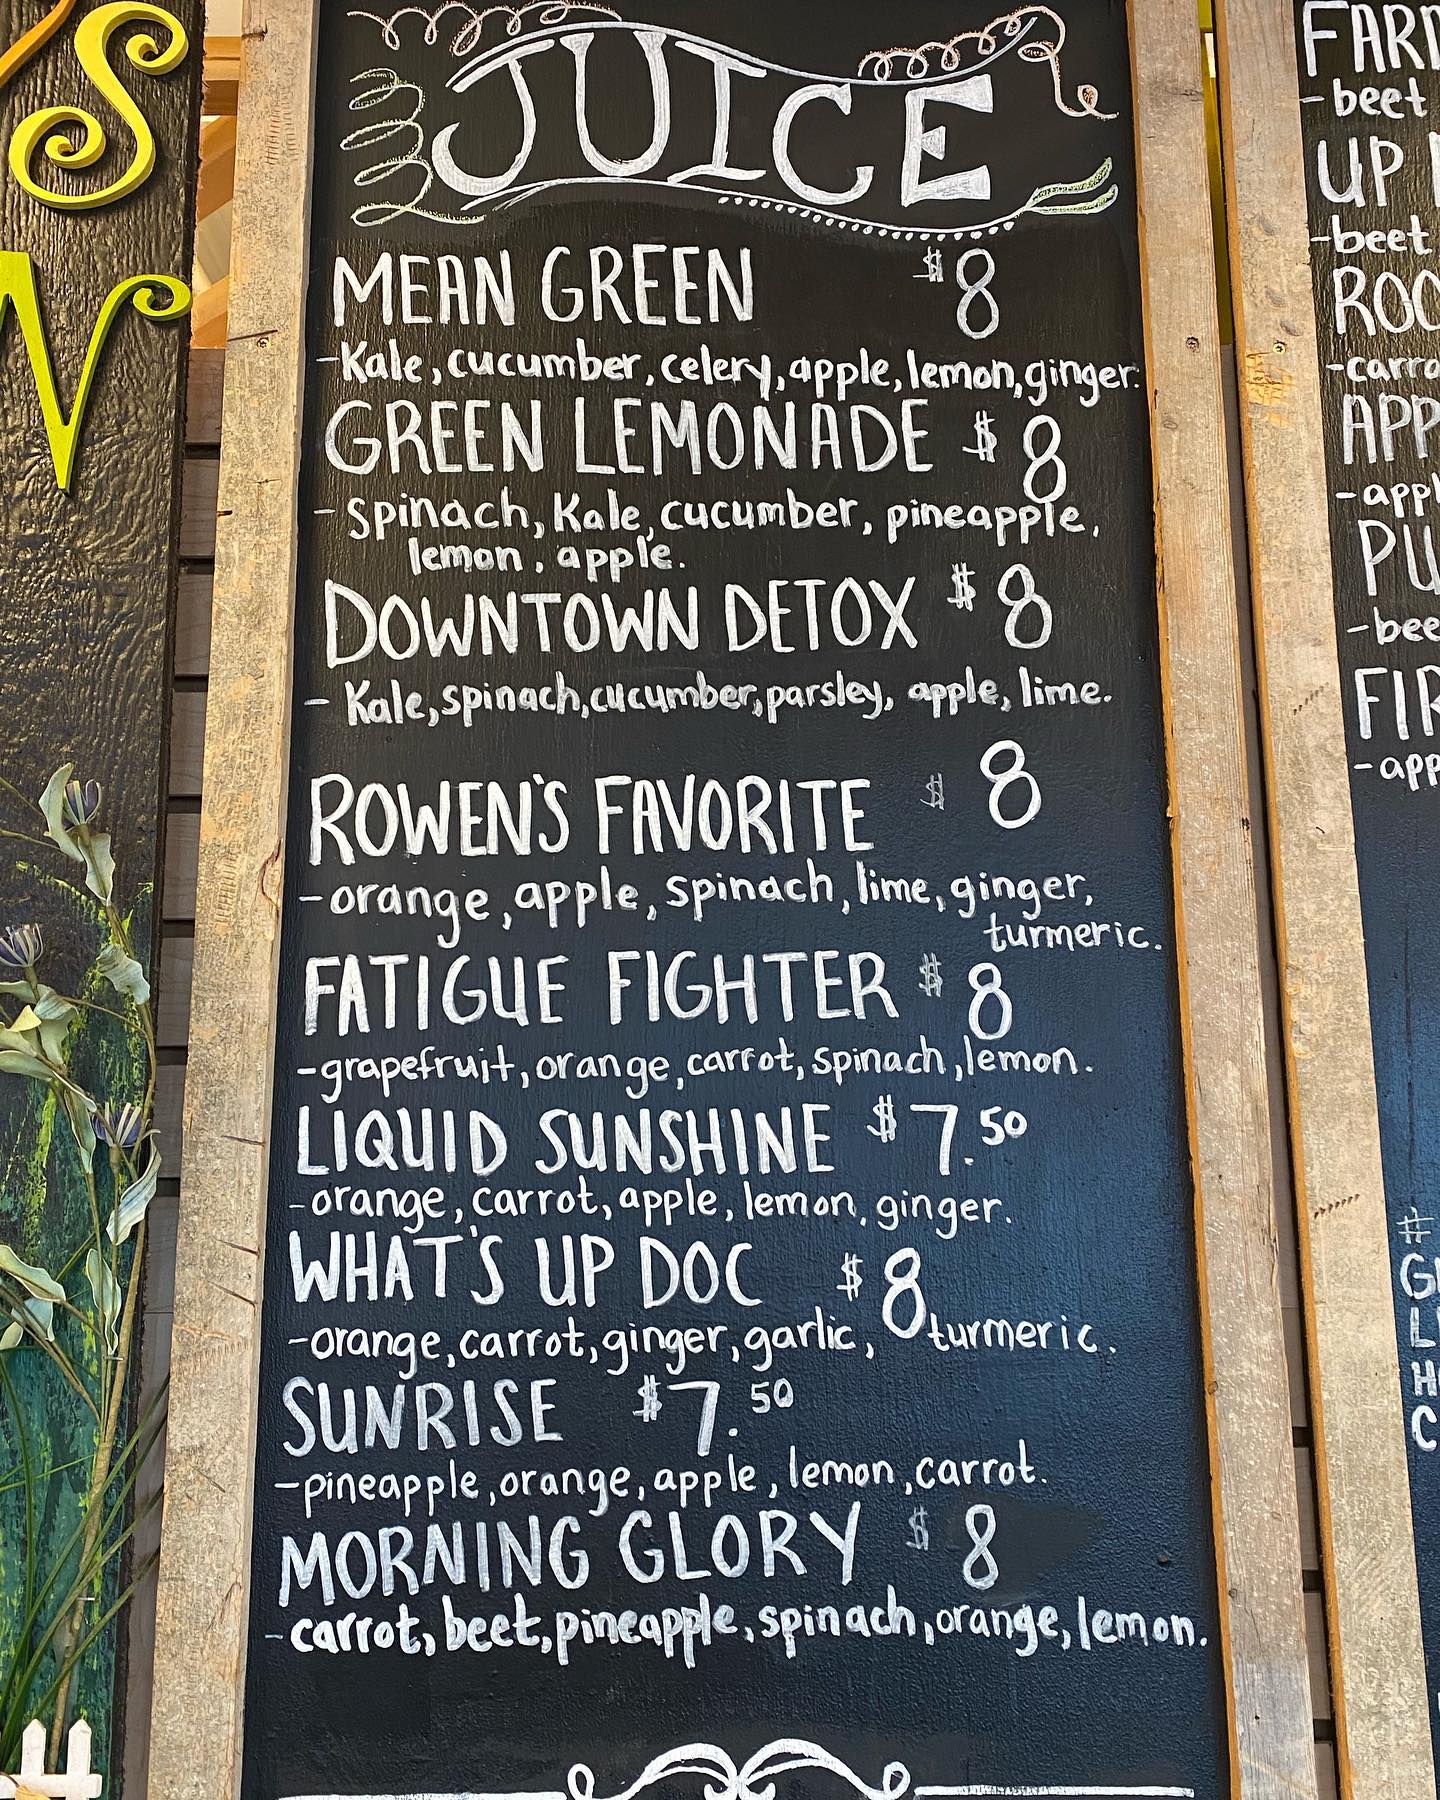 JUICE
MEAN GREEN $8
-Kale, cucumber, celery, apple, lemon, ginger.
GREEN LEMONADE $8
- Spinach, Kale, cucumber, pineapple,
lemon, apple.
DOWNTOWN DETOX $8
- Kale, spinach, cucumber, parsley, apple, lime.
ROWEN'S FAVORITE $8
-orange, apple, spinach, lime, ginger,
turmeric.
FATIGUE FIGHTER $8
-grapefruit, orange, carrot, spinach, lemon.
LIQUID SUNSHINE $7.50
-orange, carrot, apple, lemon, ginger.
WHAT'S UP DOC $8
-orange, carrot, ginger, garlic, turmeric.
SUNRISE $7.50
-pineapple, orange, apple, lemon, carrot.
MORNING GLORY $8
-carrot, beet, pineapple, spinach, orange, lemon.
-beet
UP
-beet